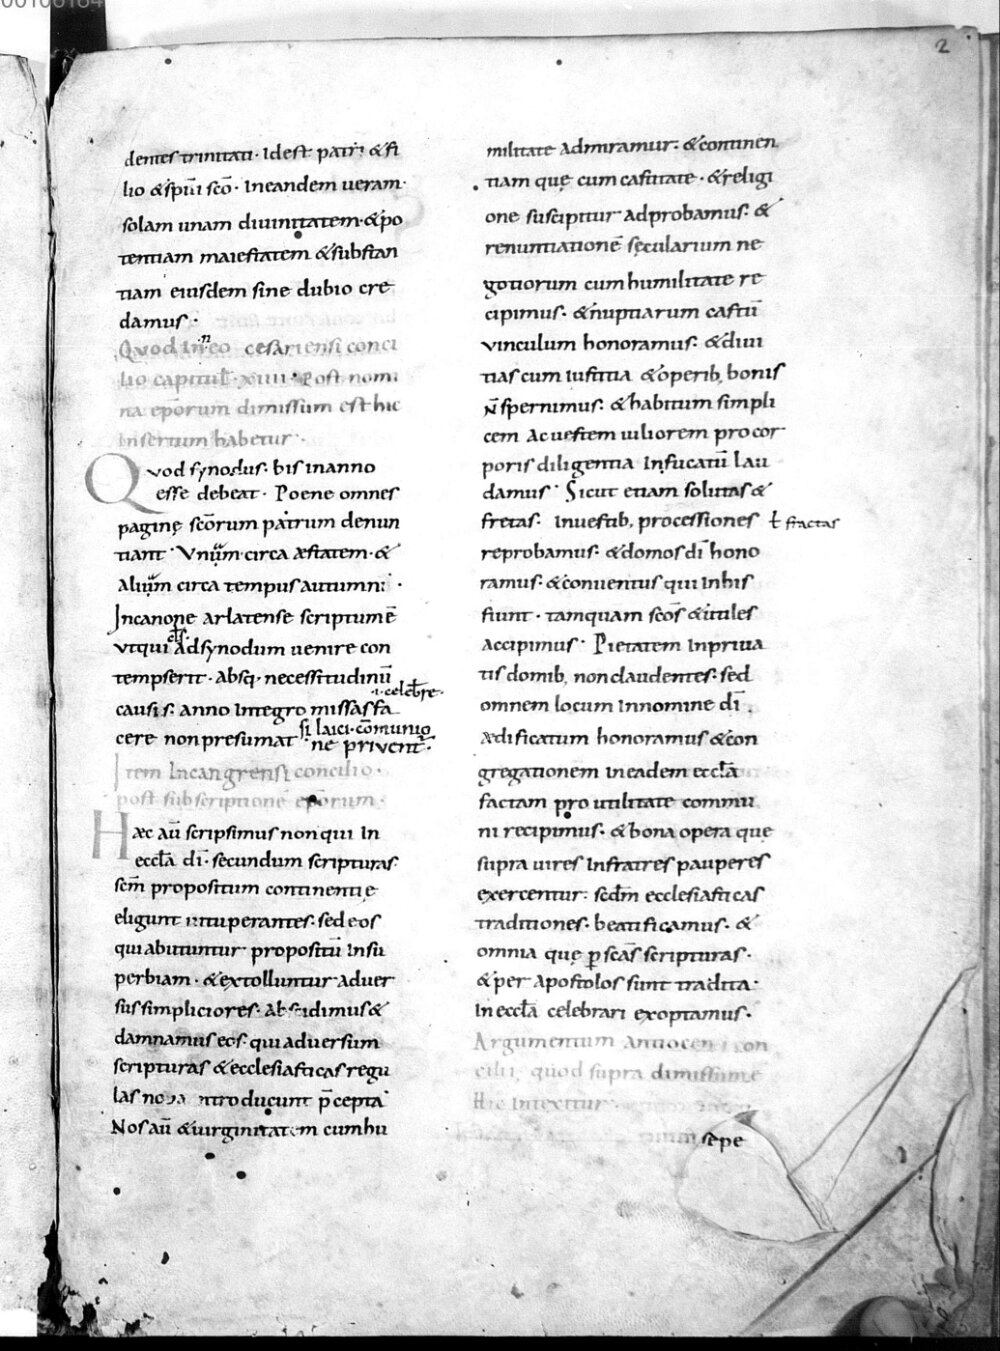 2
dentes trinitati · Id est patri & fi
lio & spūi scō · In eandem ueram ·
solam unam diuinitatem · & po
tentiam maiestatem & substan
tiam eiusdem sine dubio cre
damus ·
Quod in neo cesariensi conci
lio capitul · xiiii · Post nomi
na epōrum dimissum est hic
Insertum habetur ·
Quod synodus · bis in anno
esse debeat · Poene omnes
paginę scōrum patrum denun
tiant · Vnum circa æstatem · &
alium circa tempus autumni ·
In canone arlatense scriptum ē
vt qui ad synodum uenire con
tempserit · absq· necessitudinū
·i· celebre ·
causis · anno Integro missas fa
cere non presumat si laici · cōmunio
ne priuent ·
Item In cangrensi concilio ·
post subscriptionē epōrum ·
Haec aū scripsimus non qui In
ecclā dī · secundum scripturas
scm̄ propositum continentię
eligunt uituperantes · sed eos
qui abutuntur propositū In su
perbiam · & extolluntur aduer
sus simpliciores · Abscidimus &
damnamus eos · qui aduersum
scripturas & ecclesiasticas regu
las noua introducunt p̄cepta
Nos aū & uirginitatem cum hu
militate admiramur · & continen
tiam quę cum castitate · & religi
one suscipitur adprobamus · &
renuntiationē sęcularium ne
gotiorum cum humilitate re
cipimus · & nuptiarum castū
vinculum honoramus · & diui
tias cum Iustitia & operib, bonis
N̄ spernimus · & habitum simpli
cem ac uestem uiliorem pro cor
poris diligentia Infucatū lau
damus · Sicut etiam solutas &
fretas · In uestib, processiones ł fractas
reprobamus · & domos dī hono
ramus · & conuentus qui In his
fiunt · tamquam scōs & utiles
accipimus · Pietatem In priua
tis domib, non claudentes · sed
omnem locum In nomine dī
ædificatum honoramus & con
gregationem In eadem ecclā
factam pro utilitate commu
ni recipimus · & bona opera que
supra uires In fratres pauperes
exercentur · scdm̄ ecclesiasticas
traditiones · beatificamus · &
omnia quę p scās scripturas ·
& per apostolos sunt tradita ·
In ecclā celebrari exoptamus ·
Argumentum antioceni con
cilii, quod supra dimissum ē
Hic Intexitur ·
sepe